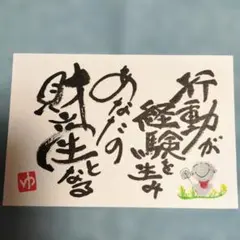 行動が
経験を生み
あなたの
財産となる
ゆ